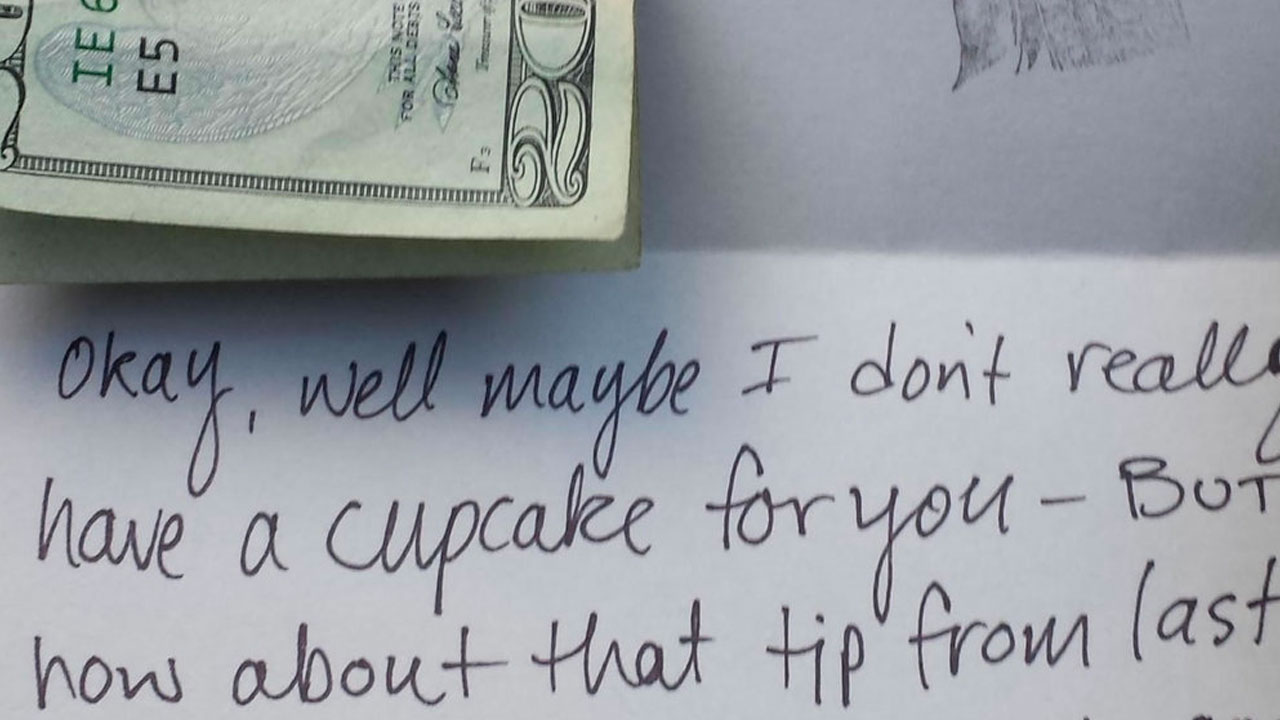 IE6
E5
THIS NOTE
FOR ALL DEBTS
F3
20
Okay, well maybe I don't really
have a cupcake for you - BUT
how about that tip from last